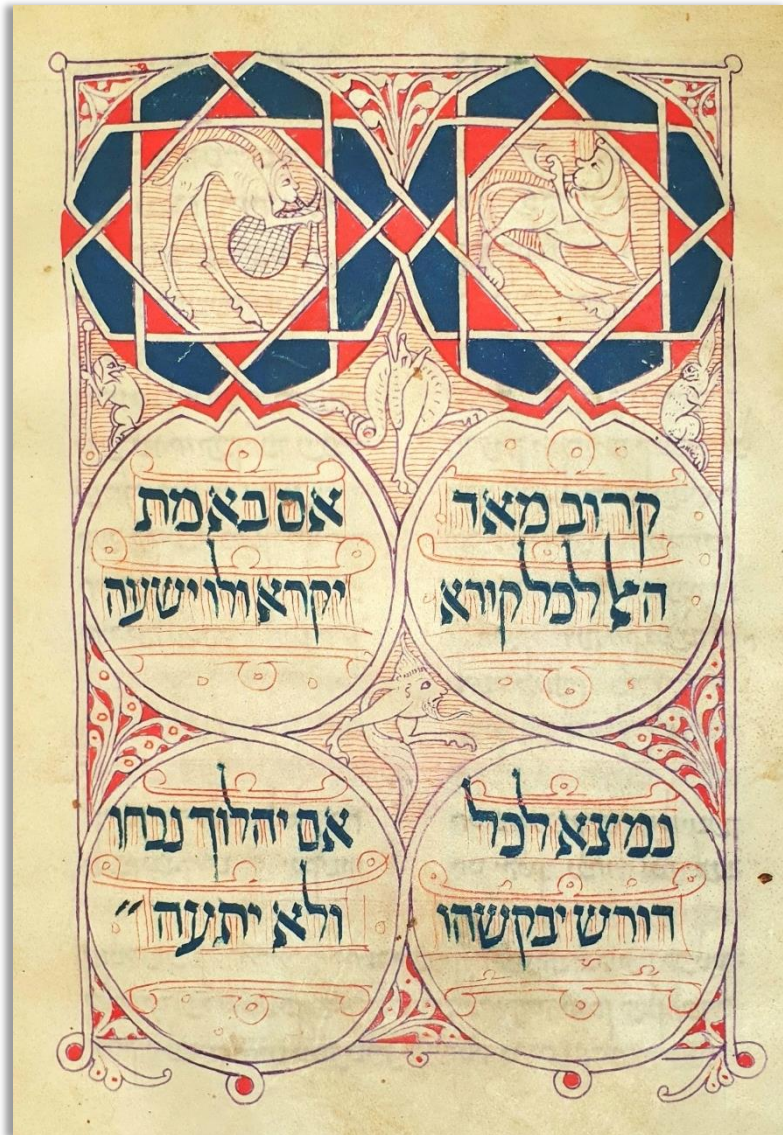 קרוב מאד
האל לכל קורא
אם באמת
יקרא ולו ישעה
נמצא לכל
דורש יבקשהו
אם יהלוך נכחו
ולא יתעה ״